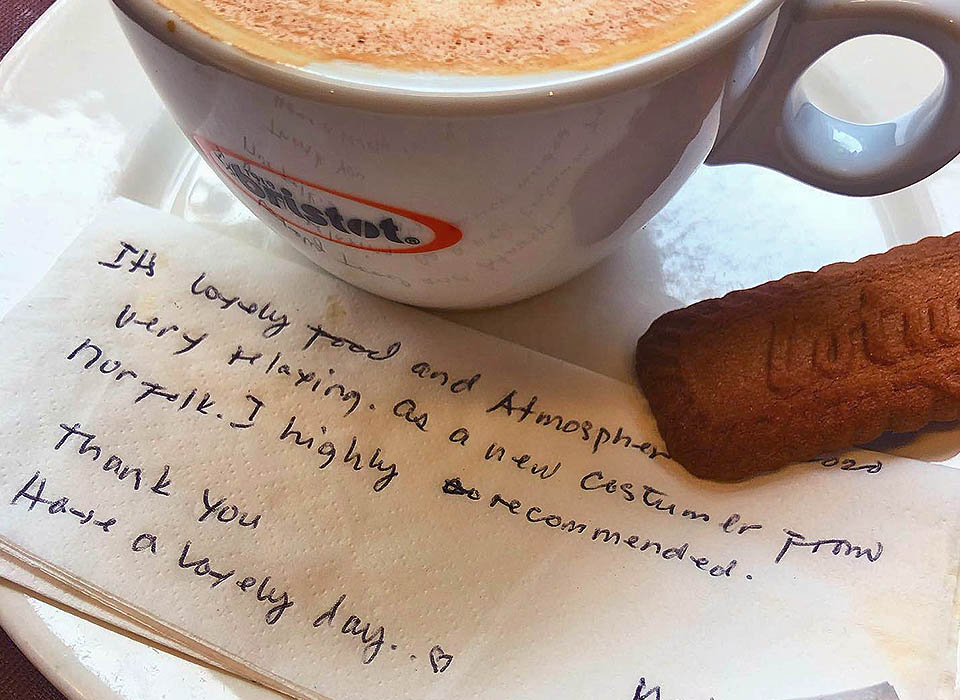 Bristot®
Its lovely Food and Atmospher
very relaxing. as a new costumer From
Norfolk. I highly recommended.
Thank you
Have a lovely day.. ♡